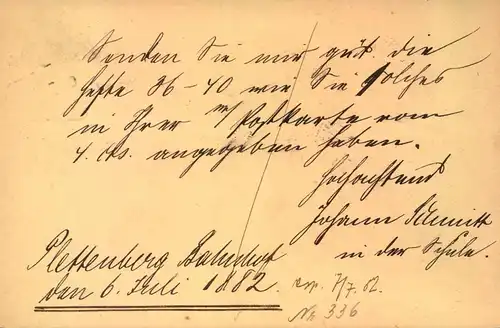 Senden Sie mir güt. die
Hefte 36-40 wie Sie solches
in Ihrer Postkarte vom
4. cts. angegeben haben.
Hochachtend
Johann Schmitt
in der Schule.
Plettenberg Bahnhof
den 6. Juli 1882.
exp. 7/7. 82.
Nr. 336